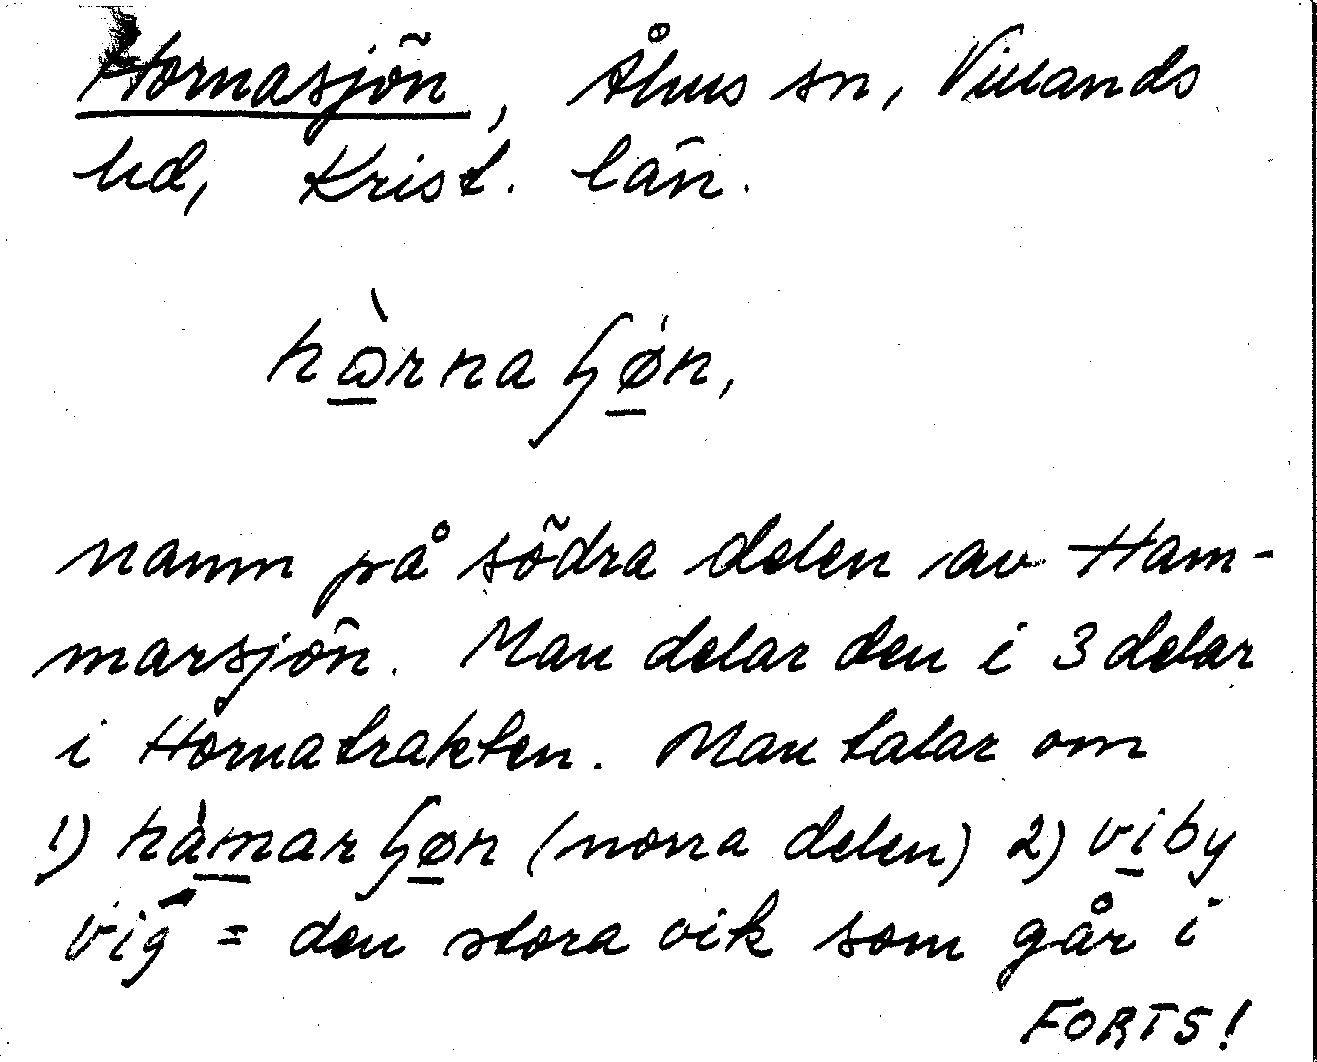 Hornasjön, Åhus sn, Villands
hd, Krist. län.
hὼrnaʃøn,
namn på södra delen av Ham-
marsjön. Man delar den i 3 delar
i Hornatrakten. Man talar om
1) hàmarʃøn (norra delen) 2) viby
vig = den stora vik som går i
FORTS!